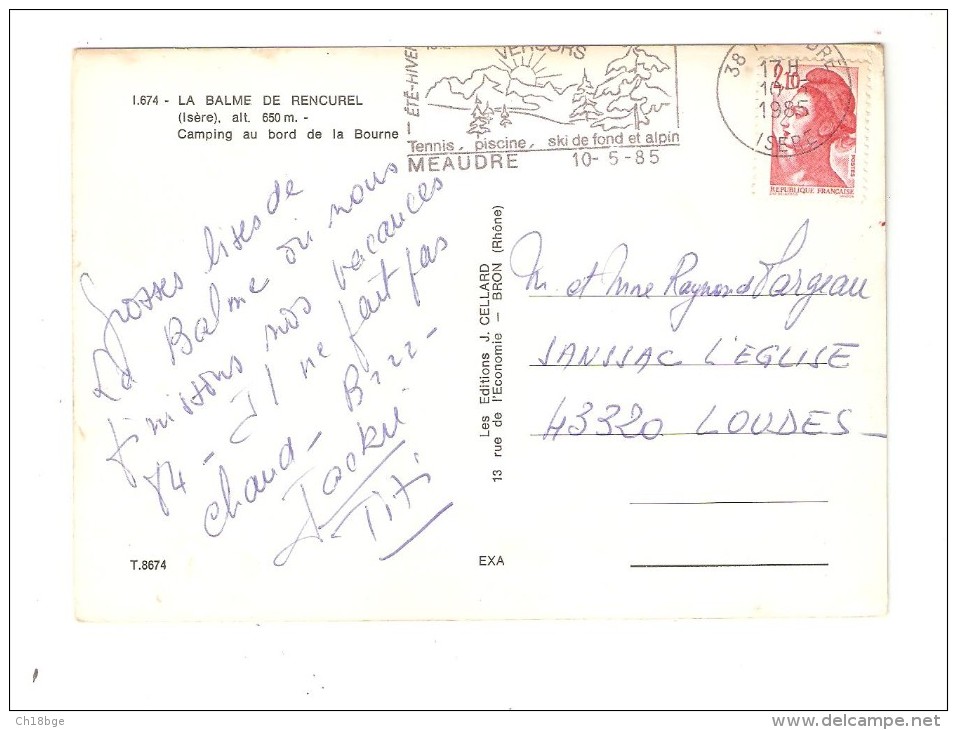 I.674 - LA BALME DE RENCUREL
(Isère), alt. 650 m. -
Camping au bord de la Bourne
ÉTÉ-HIVER
VERCORS
Tennis, piscine, ski de fond et alpin
MEAUDRE 10-5-85
38
17H
1985
ISERE
2,10
POSTES
REPUBLIQUE FRANÇAISE
Grosses bises de
La Balme où nous
finissons nos vacances
84 - Il ne fait pas
chaud - Bzzz -
Jackie
Titi
Les Editions J. CELLARD
13 rue de l'Economie - BRON (Rhône)
M et Mme Raymond Margeau
SANSSAC L'EGLISE
43320 LOUDES -
T.8674
EXA
Ch18bge
delcampe.net